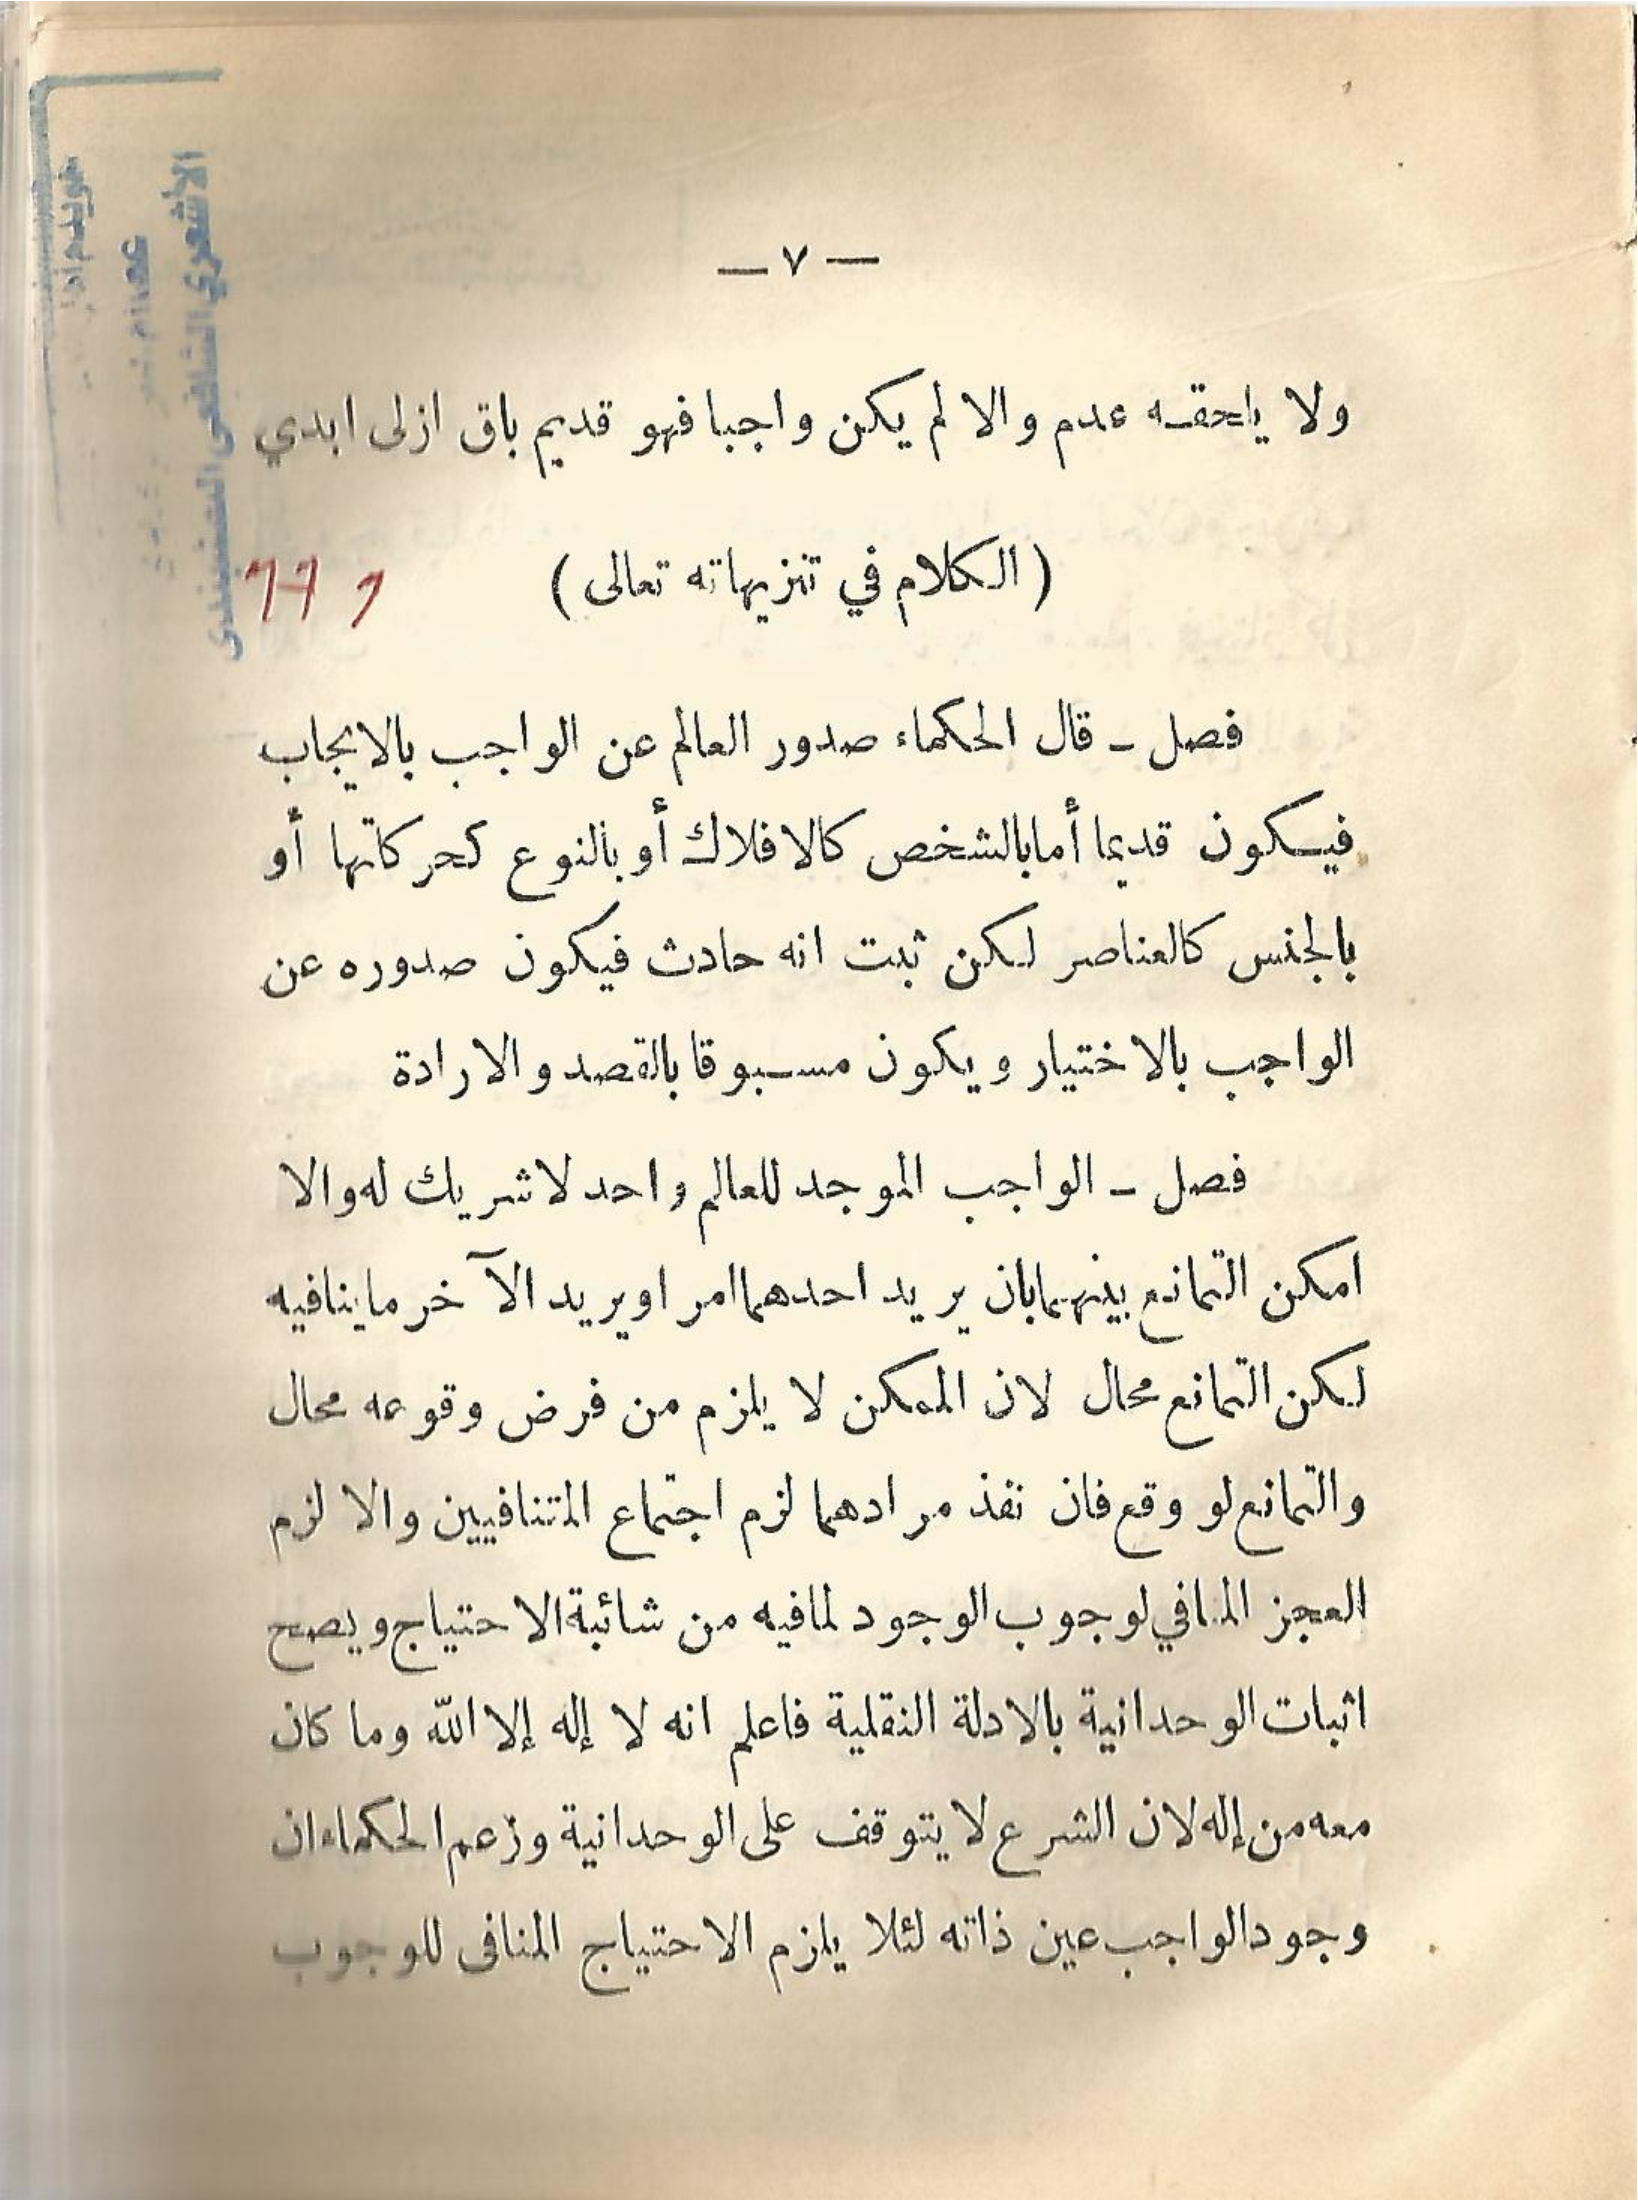 — ٧ —
ولا يلحقه عدم والا لم يكن واجبا فهو قديم باق ازلى ابدي
( الكلام في تنزيهاته تعالى )
فصل – قال الحكماء صدور العالم عن الواجب بالايجاب
فيكون قديما أما بالشخص كالافلاك أو بالنوع كحركاتها أو
بالجنس كالعناصر لكن ثبت انه حادث فيكون صدوره عن
الواجب بالاختيار ويكون مسبوقا بالقصد والارادة
فصل – الواجب الموجد للعالم واحد لا شريك له والا
امكن التمانع بينهما بان يريد احدهما امرا ويريد الآخر ما ينافيه
لكن التمانع محال لان الممكن لا يلزم من فرض وقوعه محال
والتمانع لو وقع فان نفذ مرادهما لزم اجتماع المتنافيين والا لزم
العجز المنافي لوجوب الوجود لما فيه من شائبة الاحتياج ويصح
اثبات الوحدانية بالادلة النقلية فاعلم انه لا إله إلا الله وما كان
معه من إله لان الشرع لا يتوقف على الوحدانية وزعم الحكماء ان
وجود الواجب عين ذاته لئلا يلزم الاحتياج المنافى للوجوب
الأشعري الشافعى النقشبندى